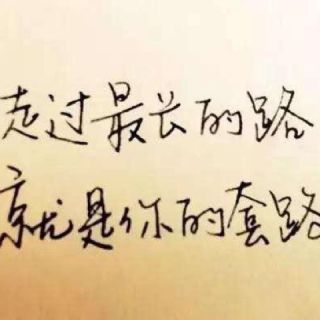 走过最长的路
就是你的套路